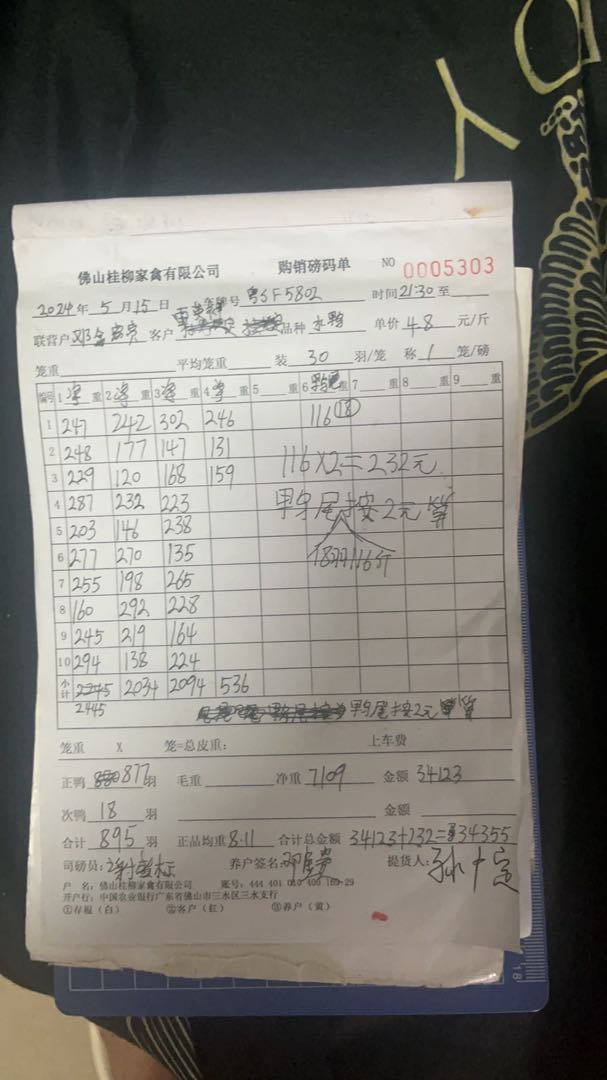 佛山桂柳家禽有限公司 购销磅码单 NO 0005303
2024年5月15日 车牌号 粤SF5802 时间21:30至
联营户 客户 品种 水鸭 单价 4.8 元/斤
笼重 平均笼重 装 30 羽/笼 称 1 笼/磅
编号 1 净 重 2 净 重 3 净 重 4 净 重 5 重 6 重 7 重 8 重 9 重
1 247 242 302 246 116 18
2 248 177 147 131
3 229 120 168 159 116×2=232元
4 287 232 223 尾按2元算
5 203 146 238
6 277 270 135 18羽116斤
7 255 198 265
8 160 292 228
9 245 219 164
10 294 138 224
小计 2245 2034 2094 536
2445 尾按2元算
笼重 X 笼=总皮重: 上车费
正鸭 877 羽 毛重 净重 7109 金额 34123
次鸭 18 羽 金额
合计 895 羽 正品均重 8.11 合计总金额 34123+232=34355
司磅员: 养户签名: 提货人:
户 名: 佛山桂柳家禽有限公司 账号: 444 401 010 400 169 29
开户行: 中国农业银行广东省佛山市三水区三水支行
①存根(白) ②客户(红) ③养户(黄)
18